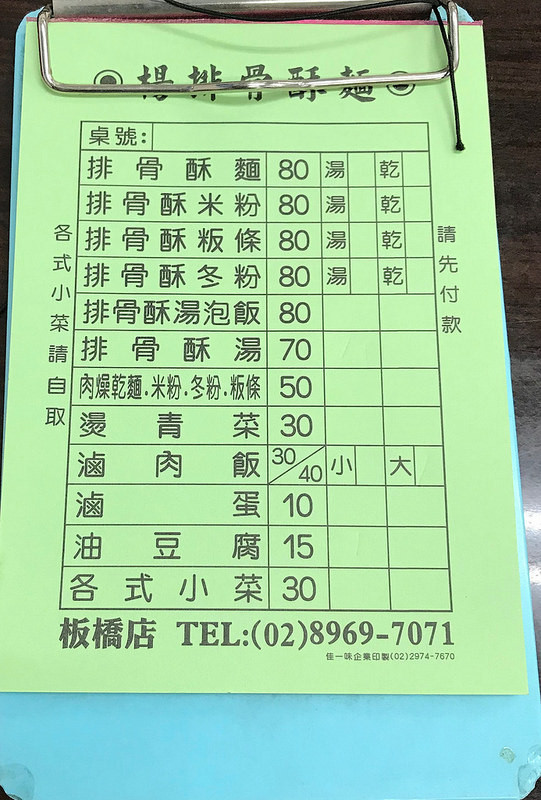 楊排骨酥麵
桌號:
排骨酥麵 80 湯 乾
排骨酥米粉 80 湯 乾
排骨酥粄條 80 湯 乾
排骨酥冬粉 80 湯 乾
排骨酥湯泡飯 80
排骨酥湯 70
肉燥乾麵.米粉.冬粉.粄條 50
燙青菜 30
滷肉飯 30/40 小 大
滷蛋 10
油豆腐 15
各式小菜 30
各式小菜請自取
請先付款
板橋店 TEL:(02)8969-7071
佳一味企業印製(02)2974-7670